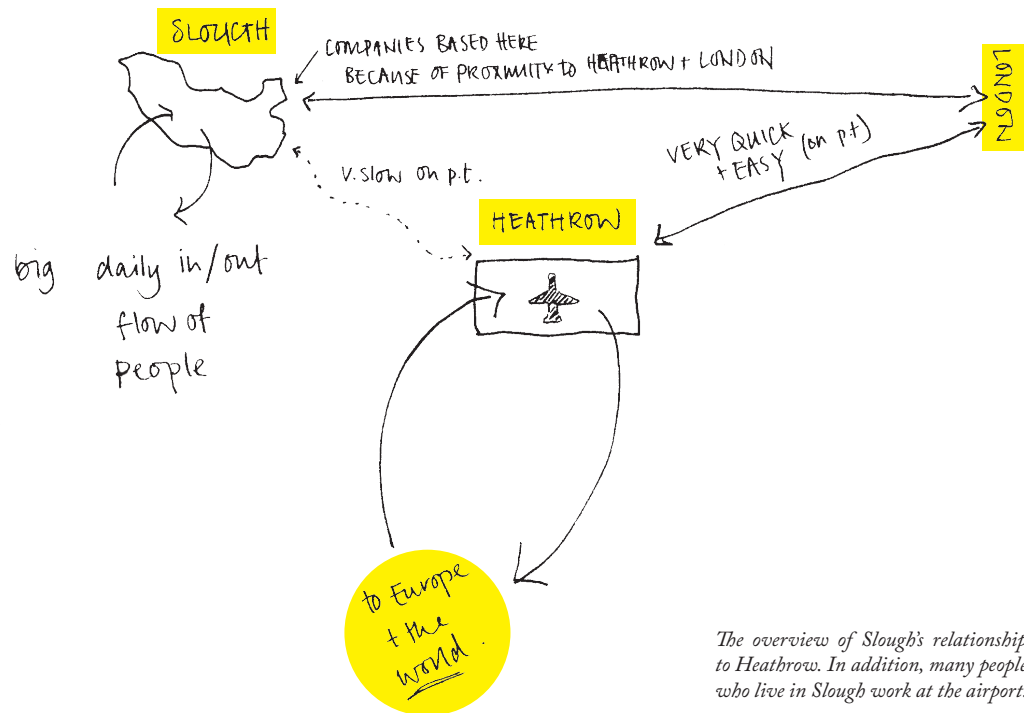 SLOUGH
COMPANIES BASED HERE
BECAUSE OF PROXIMITY to HEATHROW + LONDON
LONDON
VERY QUICK
+ EASY (on p.t)
V. SLOW on p.t.
HEATHROW
big daily in/out
flow of
people
to Europe
+ the
world.
The overview of Slough's relationship
to Heathrow. In addition, many people
who live in Slough work at the airport.